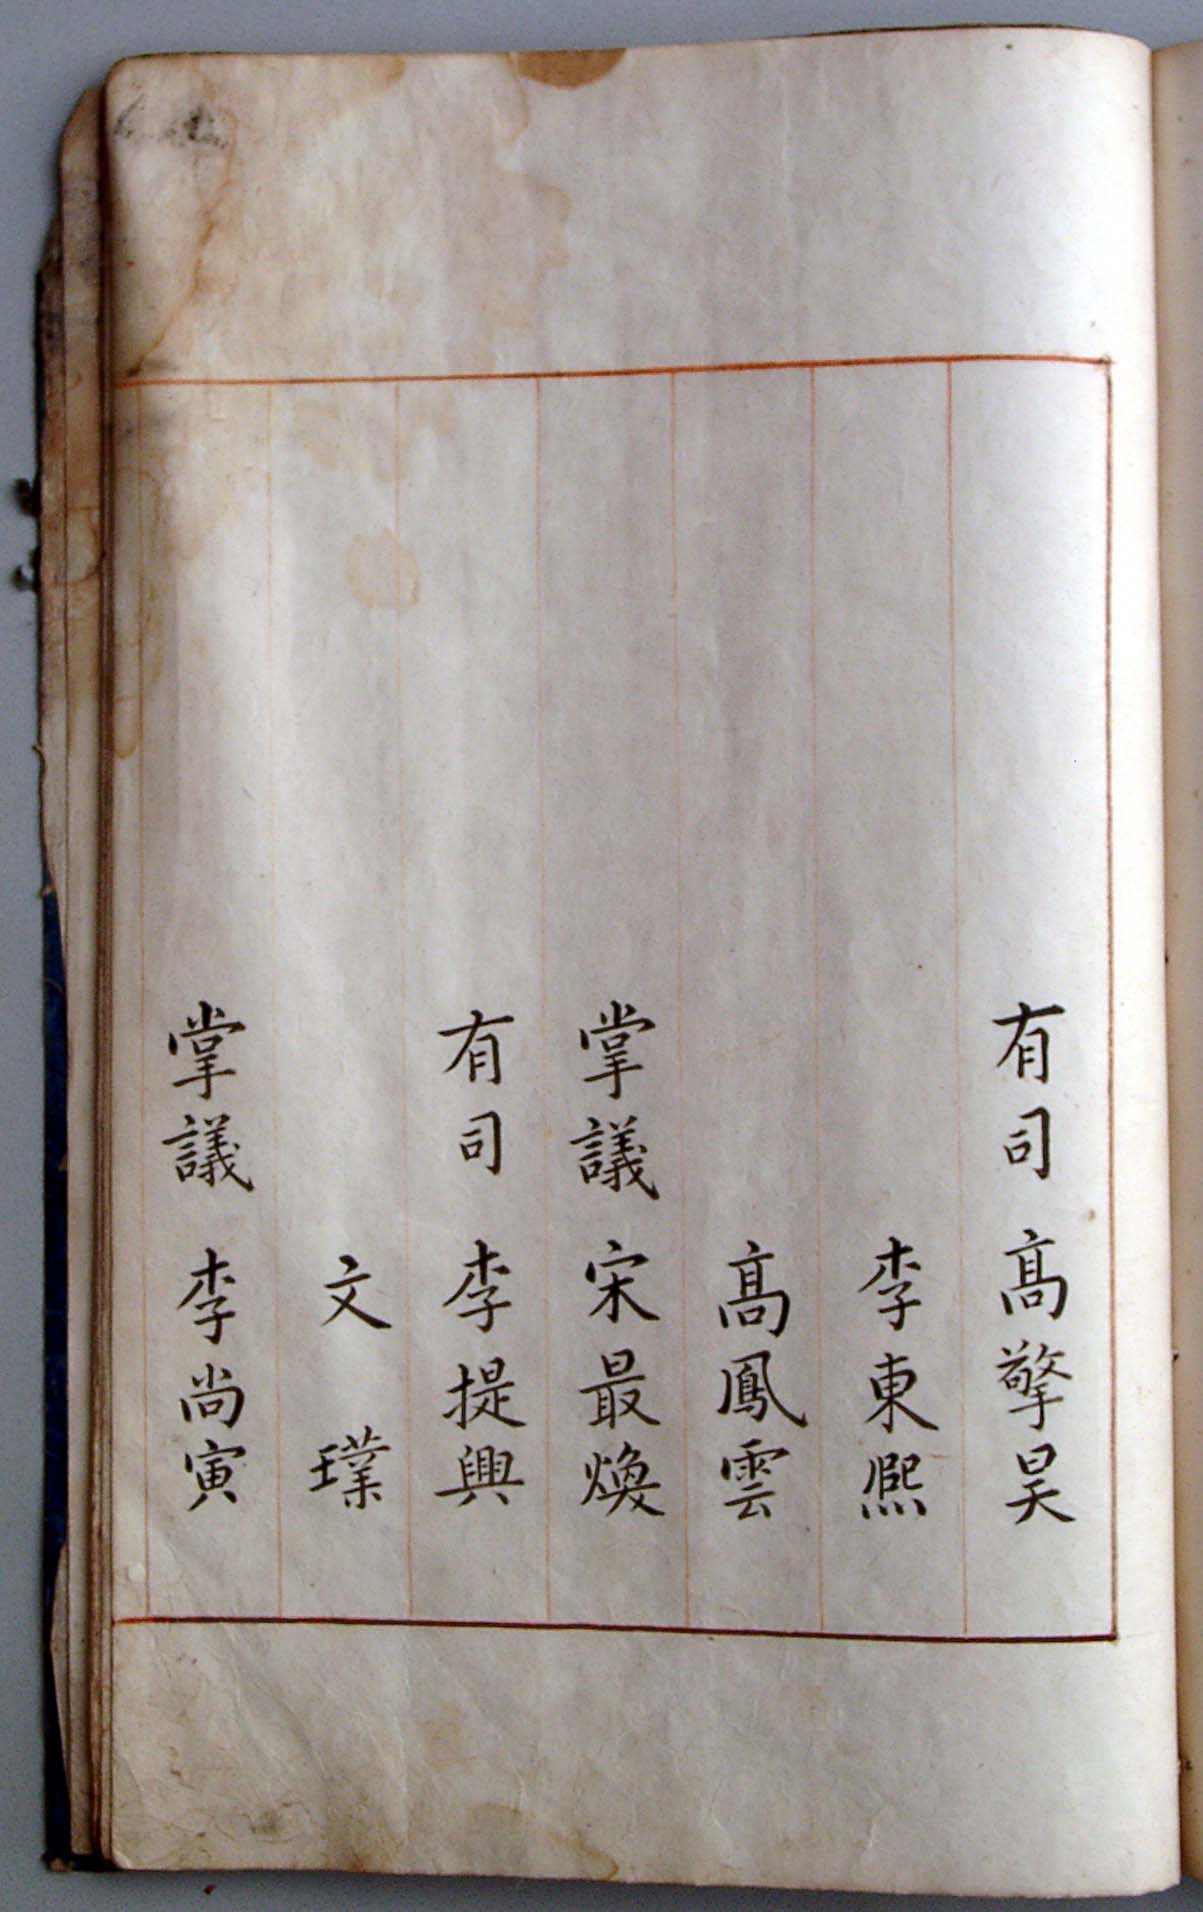 有司 髙擎昊
李東熙
髙鳳雲
掌議 宋最煥
有司 李提興
文 璞
掌議 李尚寅